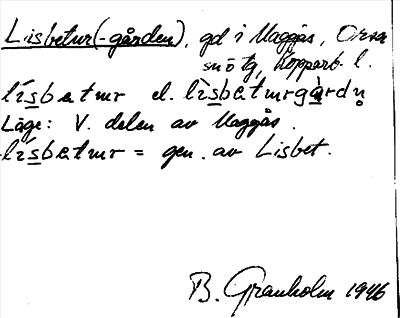 Lisbetur(-gården), gd i Maggås, Orsa
snötg, Kopparb. l.
lìsbætur el. lìsbæturgàrdn̥
Läge: V. delen av Maggås.
lìsbætur = gen. av Lisbet.
B. Granholm 1946